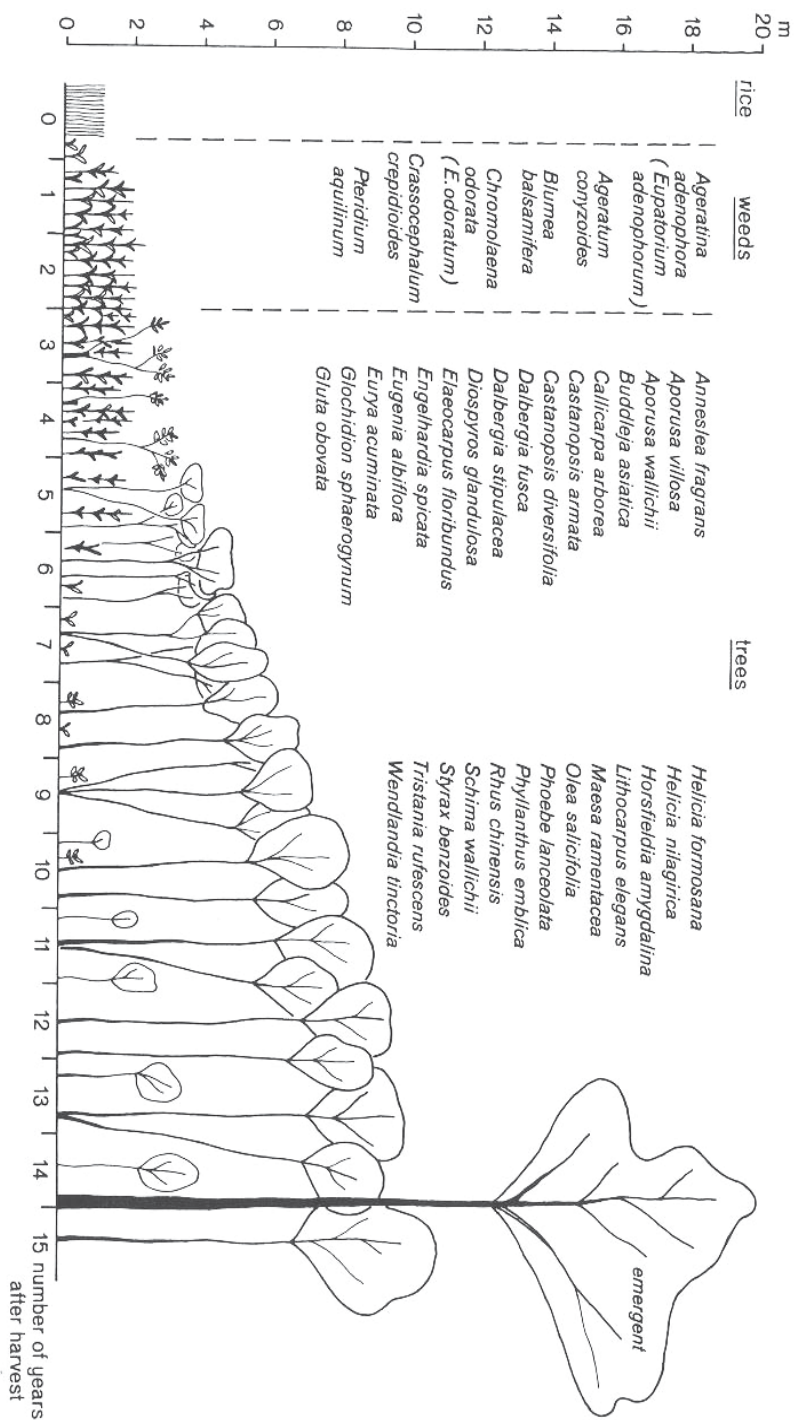 m
20
18
16
14
12
10
8
6
4
2
0
rice
weeds
Ageratina
adenophora
(Eupatorium
adenophorum)
Ageratum
conyzoides
Blumea
balsamifera
Chromolaena
odorata
(E.odoratum)
Crassocephalum
crepidioides
Pteridium
aquilinum
trees
Anneslea fragrans
Aporusa villosa
Aporusa wallichii
Buddleja asiatica
Callicarpa arborea
Castanopsis armata
Castanopsis diversifolia
Dalbergia fusca
Dalbergia stipulacea
Diospyros glandulosa
Elaeocarpus floribundus
Engelhardia spicata
Eugenia albiflora
Eurya acuminata
Glochidion sphaerogynum
Gluta obovata
Helicia formosana
Helicia nilagirica
Horsfieldia amygdalina
Lithocarpus elegans
Maesa ramentacea
Olea salicifolia
Phoebe lanceolata
Phyllanthus emblica
Rhus chinensis
Schima wallichii
Styrax benzoides
Tristania rufescens
Wendlandia tinctoria
emergent
0 1 2 3 4 5 6 7 8 9 10 11 12 13 14 15 number of years
after harvest